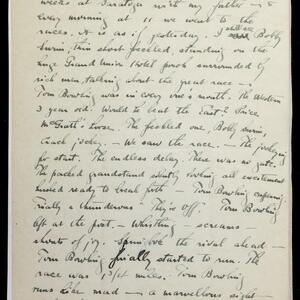 weeks at Saratoga with my father - &
every morning at 11 we went to the
races. It is as if yesterday. I still see Bobby
Swim, thin short freckled standing on the
huge Grand Union Hotel porch surrounded by
rich men, talking about the great race -
Tom Bowling was in every one's mouth. The Western
3 year old. Would he beat the East? Price
McGrath's horse. The freckled one, Bobby Swim,
Crack jockey. - We saw the race. - The jockeying
for start. The endless delay. There was no gate.
The packed grandstand silently boiling all excitement
ready to break forth - Tom Bowling
Finally a thunderous - They're Off! Tom Bowling
left at the post. - Whistling - screams -
shouts of joy. Springbok the rival ahead -
Tom Bowling finally started to run. The
race was miles. Tom Bowling
runs like mad - a marvellous sight -